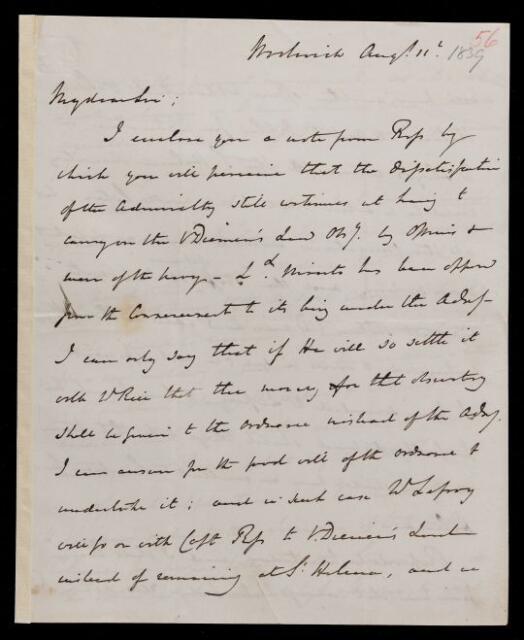 56
Woolwich Augt. 11th. 1839
My dear Sir;
I enclose you a note from Ross by
which you will perceive that the Dissatisfaction
of the Admiralty still continues at having to
carry on the V Diemen's Land Obsy. by Officers &
men of the Navy - Ld. Minto has been opposed
from the Commencement to its being under the Admy.
I can only say that if He will so settle it
with Mr Rice that the money for that observatory
shall be given to the Ordnance instead of the Admy.
I can answer for the good will of the Ordnance to
undertake it; and in such case Mr Lefroy
will go on with Capt Ross to V Diemen's Land
instead of remaining at St. Helena, and